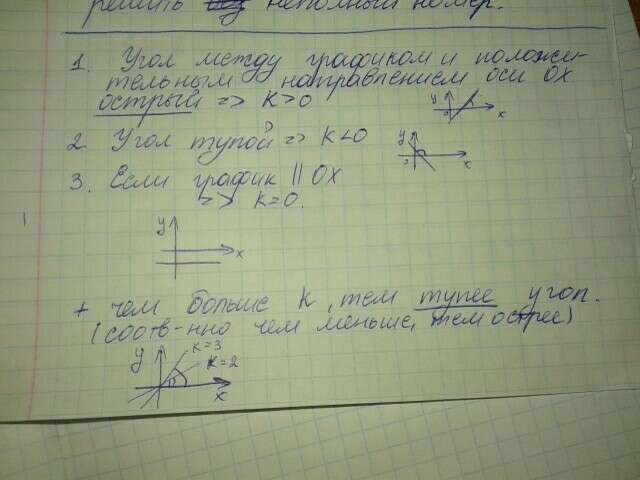 решить без неполный номер.
1. Угол между графиком и положи-
тельным направлением оси Ox
острый => K>0
y x
2. Угол тупой => K<0
y x
3. Если график || Ox
=> K=0.
y
x
+ чем больше K, тем тупее угол.
(соотв-нно чем меньше, тем острее)
y K=3
K=2
x